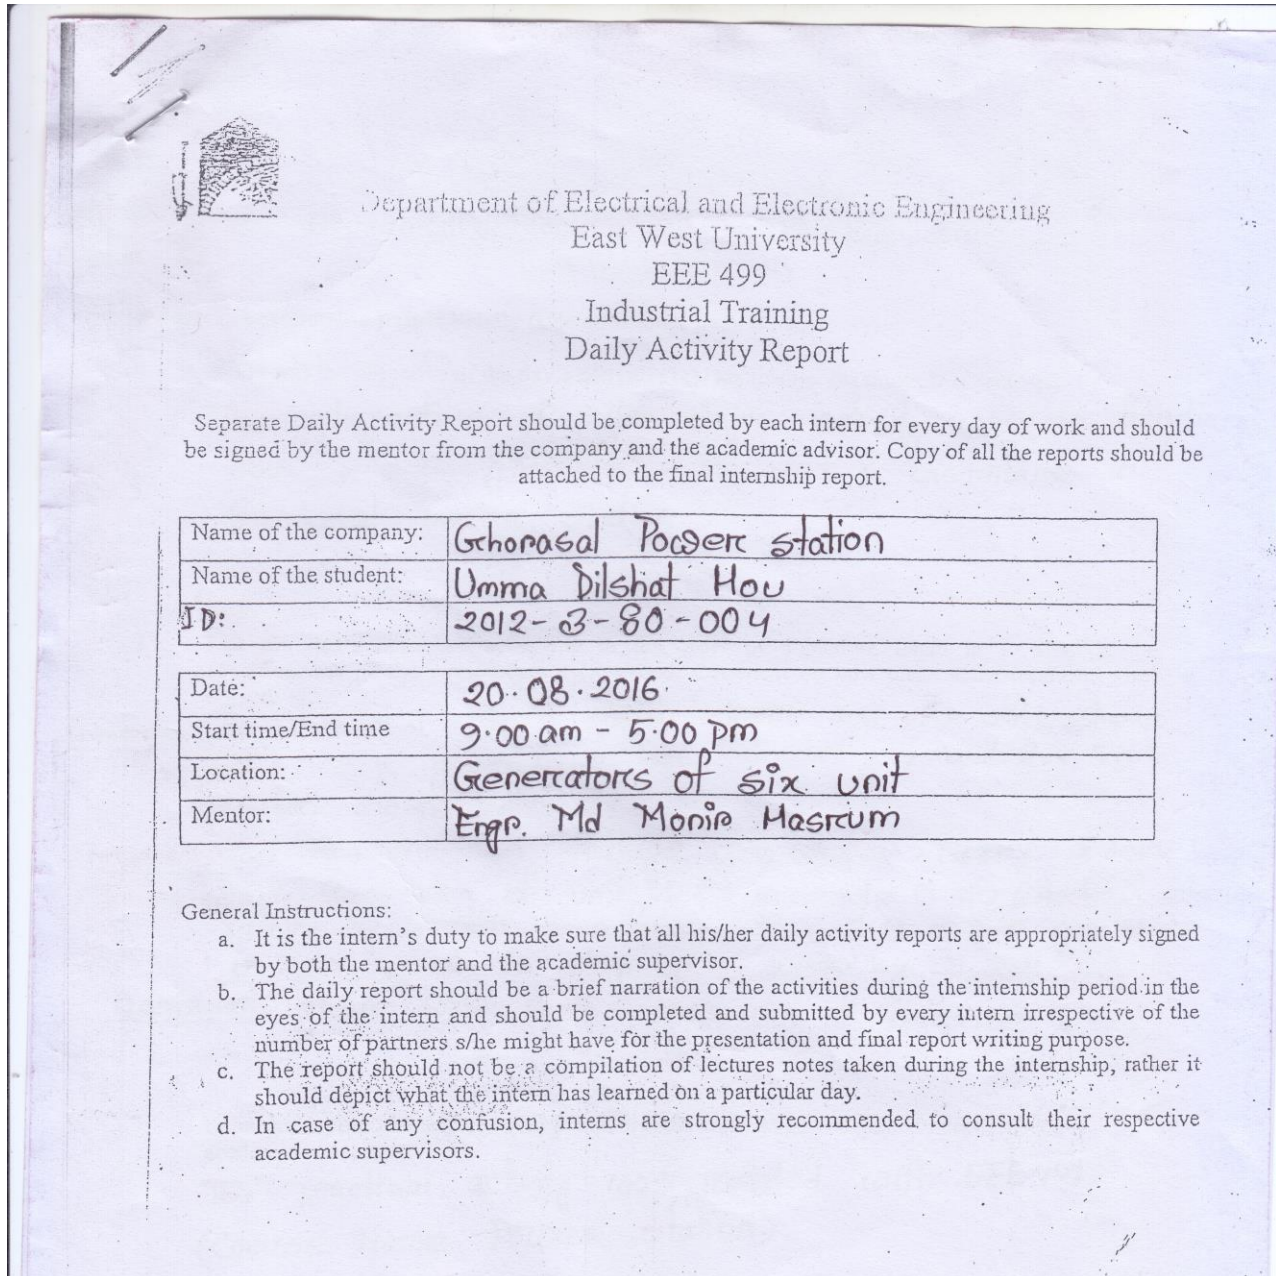 Department of Electrical and Electronic Engineering
East West University
EEE 499
Industrial Training
Daily Activity Report
Separate Daily Activity Report should be completed by each intern for every day of work and should
be signed by the mentor from the company and the academic advisor. Copy of all the reports should be
attached to the final internship report.
Name of the company: Ghorasal Power station
Name of the student: Umma Dilshat Hou
ID: 2012-3-80-004
Date: 20.08.2016
Start time/End time 9.00 am - 5.00 pm
Location: Generators of six unit
Mentor: Engr. Md Monir
General Instructions:
a. It is the intern's duty to make sure that all his/her daily activity reports are appropriately signed
by both the mentor and the academic supervisor.
b. The daily report should be a brief narration of the activities during the internship period in the
eyes of the intern and should be completed and submitted by every intern irrespective of the
number of partners s/he might have for the presentation and final report writing purpose.
c. The report should not be a compilation of lectures notes taken during the internship, rather it
should depict what the intern has learned on a particular day.
d. In case of any confusion, interns are strongly recommended to consult their respective
academic supervisors.